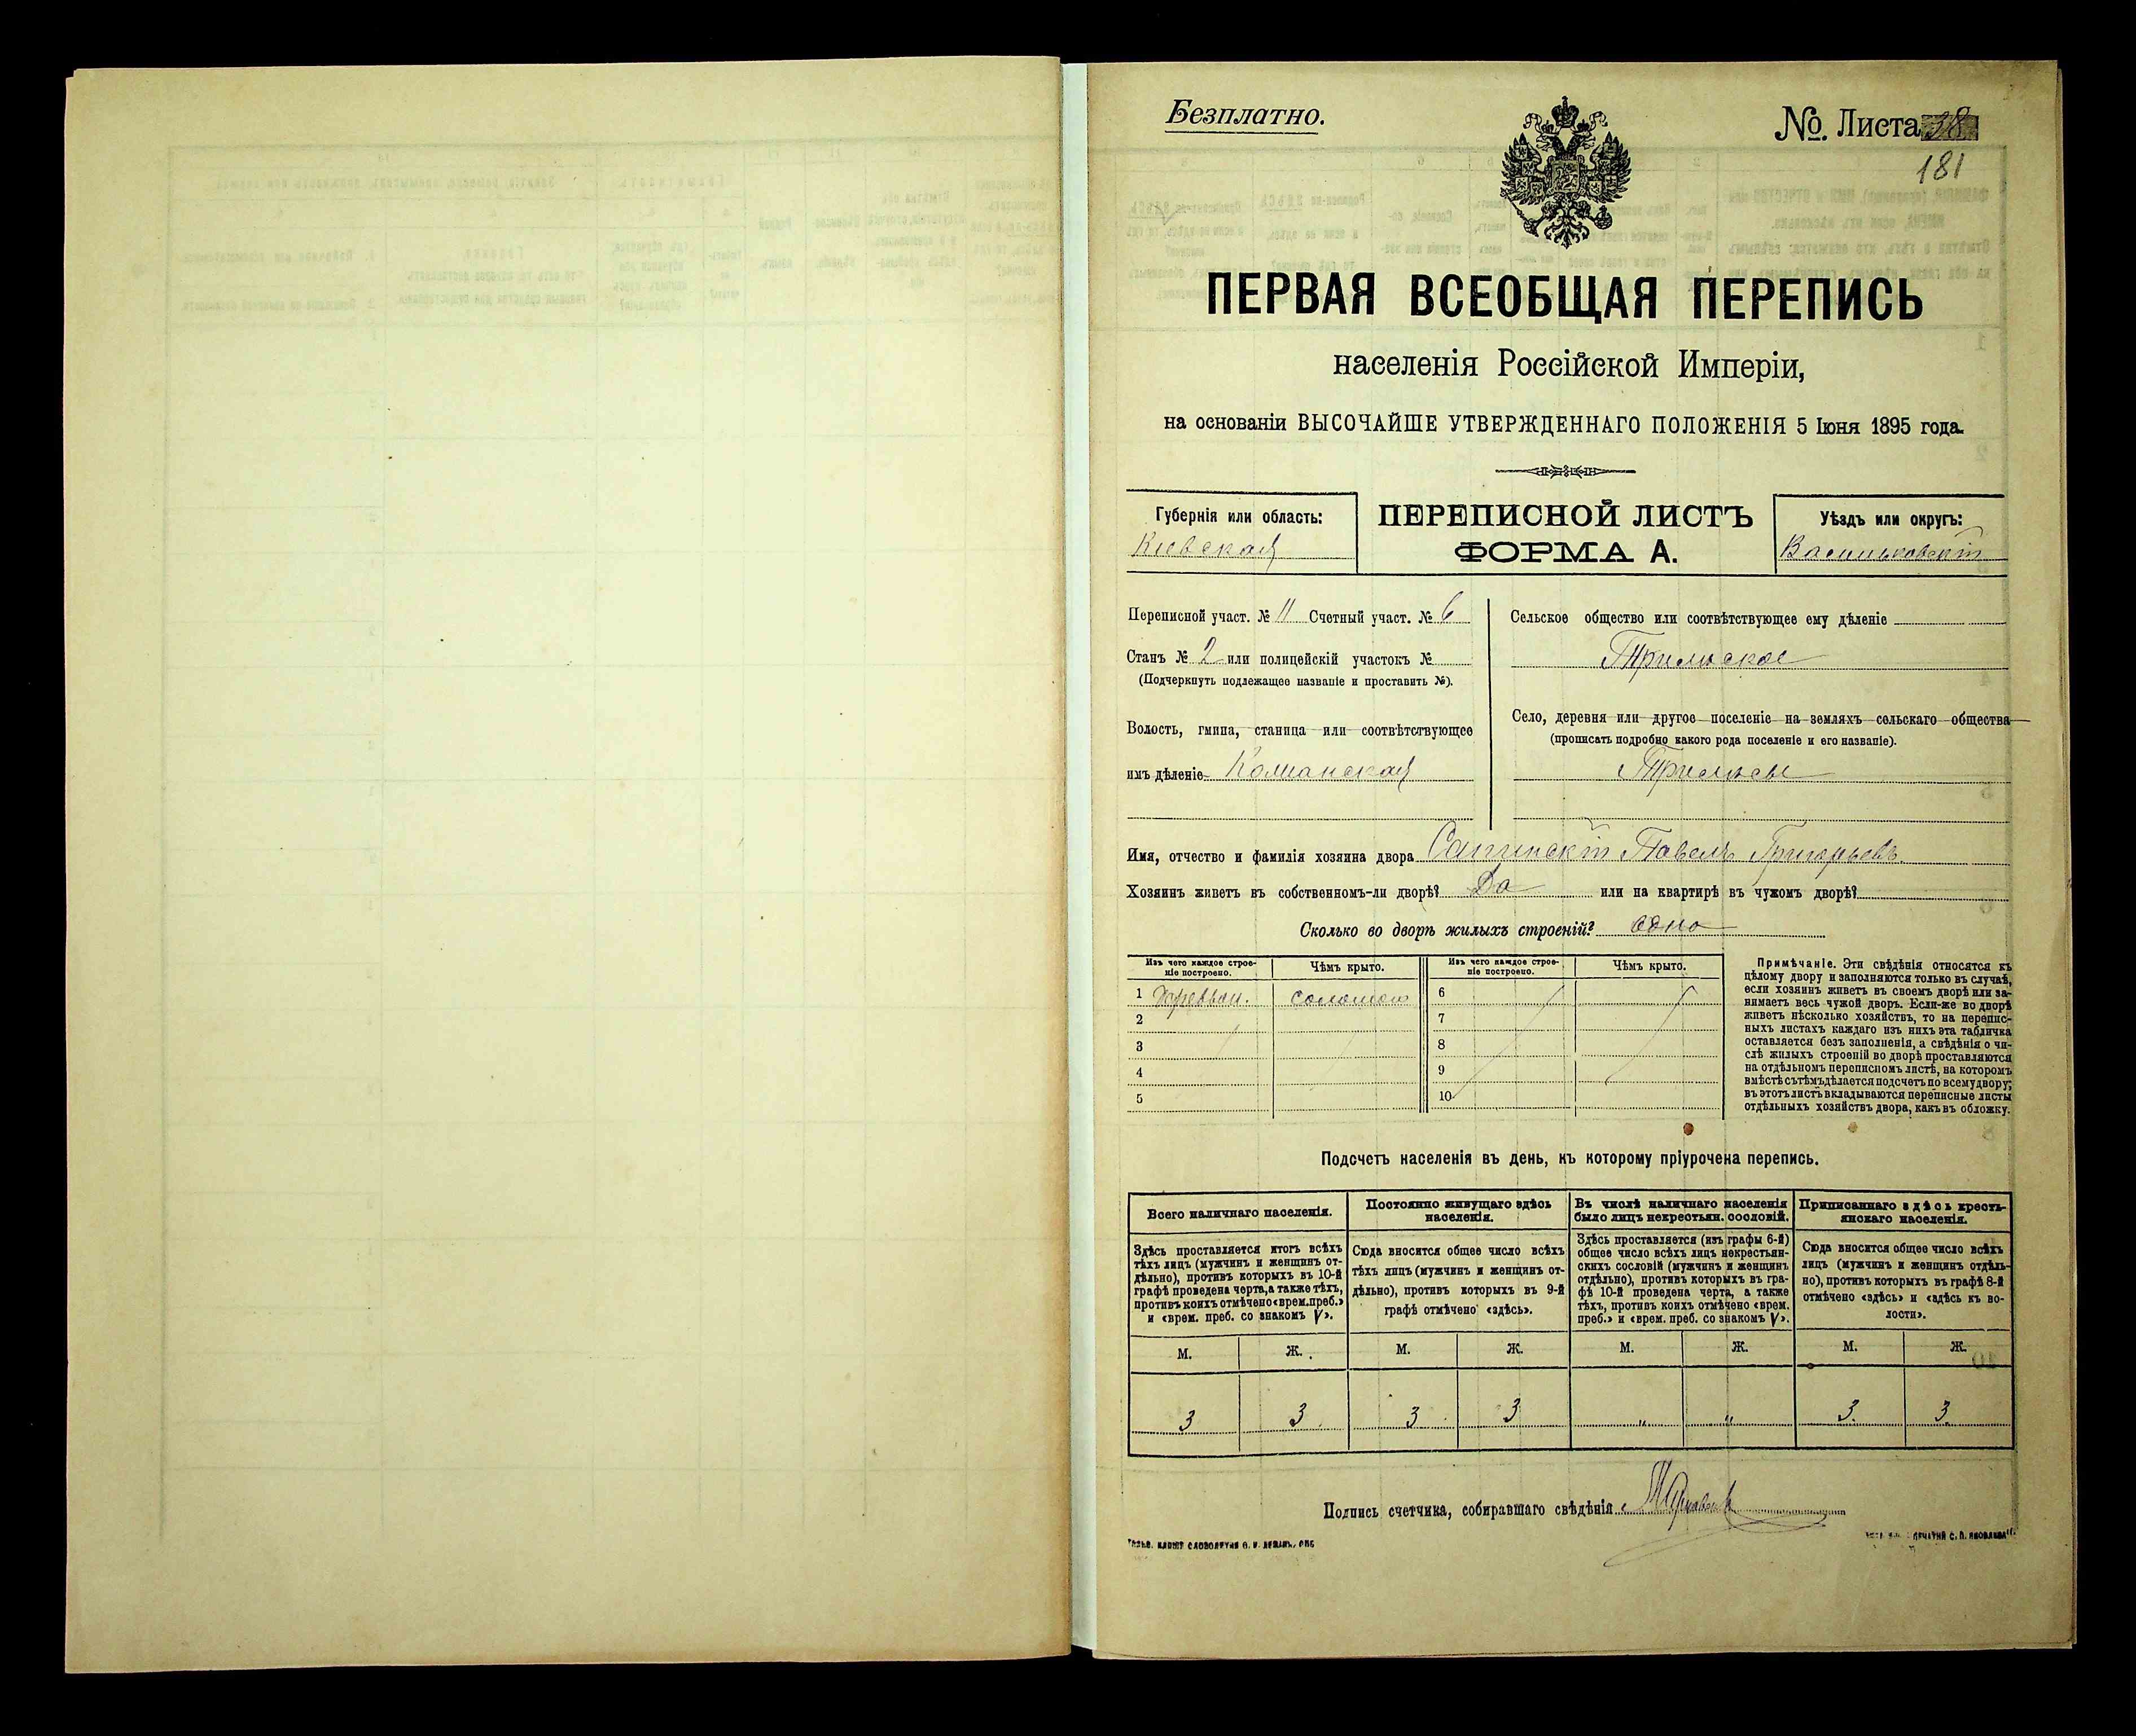 Безплатно.
№. Листа 38
181
ПЕРВАЯ ВСЕОБЩАЯ ПЕРЕПИСЬ
населенія Россійской Имперіи,
на основаніи ВЫСОЧАЙШЕ УТВЕРЖДЕННАГО ПОЛОЖЕНІЯ 5 Іюня 1895 года.
Губернія или область:
Кіевская
ПЕРЕПИСНОЙ ЛИСТЪ
ФОРМА А.
Уѣздъ или округъ:
Васильковскій
Переписной участ. № 11 Счетный участ. № 6
Станъ № 2 или полицейскій участокъ №
(Подчеркнуть подлежащее названіе и проставить №).
Волость, гмина, станица или соотвѣтствующее
имъ дѣленіе
Сельское общество или соотвѣтствующее ему дѣленіе
Трилѣское
Село, деревня или другое поселеніе на земляхъ сельскаго общества
(прописать подробно какого рода поселеніе и его названіе).
Трилѣсы
Имя, отчество и фамилія хозяина двора Павелъ Григорьевъ
Хозяинъ живетъ въ собственномъ-ли дворѣ? Да или на квартирѣ въ чужомъ дворѣ?
Сколько во дворѣ жилыхъ строеній? одно
Изъ чего каждое строе-
ніе построено.
Чѣмъ крыто.
Изъ чего каждое строе-
ніе построено.
Чѣмъ крыто.
1 соломою
2
3
4
5
6
7
8
9
10
Примѣчаніе. Эти свѣдѣнія относятся къ
цѣлому двору и заполняются только въ случаѣ,
если хозяинъ живетъ въ своемъ дворѣ или за-
нимаетъ весь чужой дворъ. Если-же во дворѣ
живетъ нѣсколько хозяйствъ, то на перепис-
ныхъ листахъ каждаго изъ нихъ эта табличка
оставляется безъ заполненія, а свѣдѣнія о чи-
слѣ жилыхъ строеній во дворѣ проставляются
на отдѣльномъ переписномъ листѣ, на которомъ
вмѣстѣ съ тѣмъ дѣлается подсчетъ по всему двору;
въ этотъ листъ вкладываются переписные листы
отдѣльныхъ хозяйствъ двора, какъ въ обложку.
Подсчетъ населенія въ день, къ которому пріурочена перепись.
Всего наличнаго населенія.
Постоянно живущаго здѣсь
населенія.
Въ числѣ наличнаго населенія
было лицъ некрестьян. сословій.
Приписаннаго здѣсь кресть-
янскаго населенія.
Здѣсь проставляется итогъ всѣхъ
тѣхъ лицъ (мужчинъ и женщинъ от-
дѣльно), противъ которыхъ въ 10-й
графѣ проведена черта, а также тѣхъ,
противъ коихъ отмѣчено «врем. преб.»
и «врем. преб. со знакомъ V».
Сюда вносится общее число всѣхъ
тѣхъ лицъ (мужчинъ и женщинъ от-
дѣльно), противъ которыхъ въ 9-й
графѣ отмѣчено «здѣсь».
Здѣсь проставляется (изъ графы 6-й)
общее число всѣхъ лицъ некрестьян-
скихъ сословій (мужчинъ и женщинъ
отдѣльно), противъ которыхъ въ гра-
фѣ 10-й проведена черта, а также
тѣхъ, противъ коихъ отмѣчено «врем.
преб.» и «врем. преб. со знакомъ V».
Сюда вносится общее число всѣхъ
лицъ (мужчинъ и женщинъ отдѣль-
но), противъ которыхъ въ графѣ 8-й
отмѣчено «здѣсь» и «здѣсь къ во-
лости».
М. Ж. М. Ж. М. Ж. М. Ж.
3 3 3 3 „ „ 3. 3.
Подпись счетчика, собиравшаго свѣдѣнія